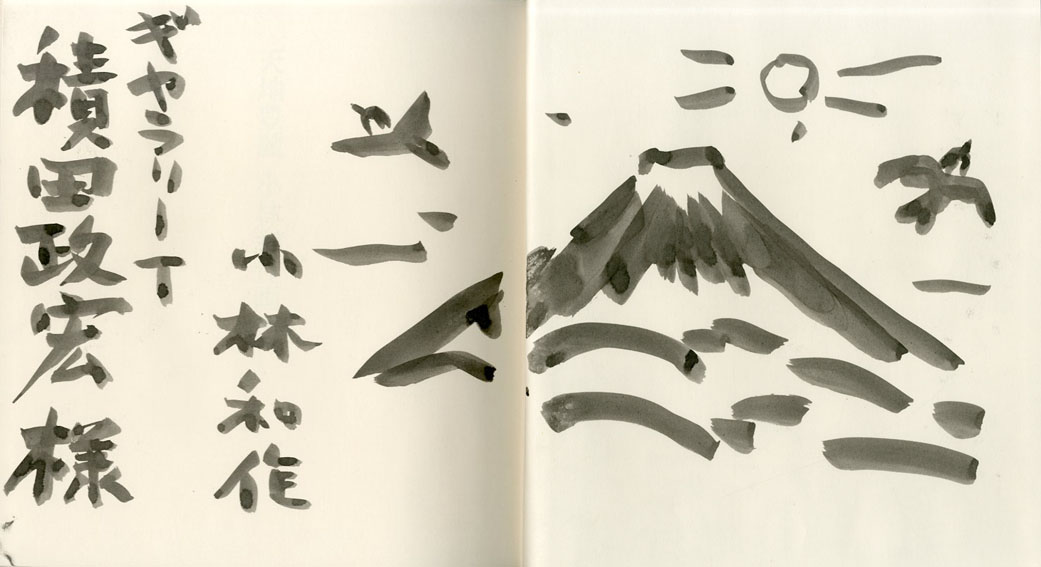 小林和作
ギヤラリーT
積田政宏様